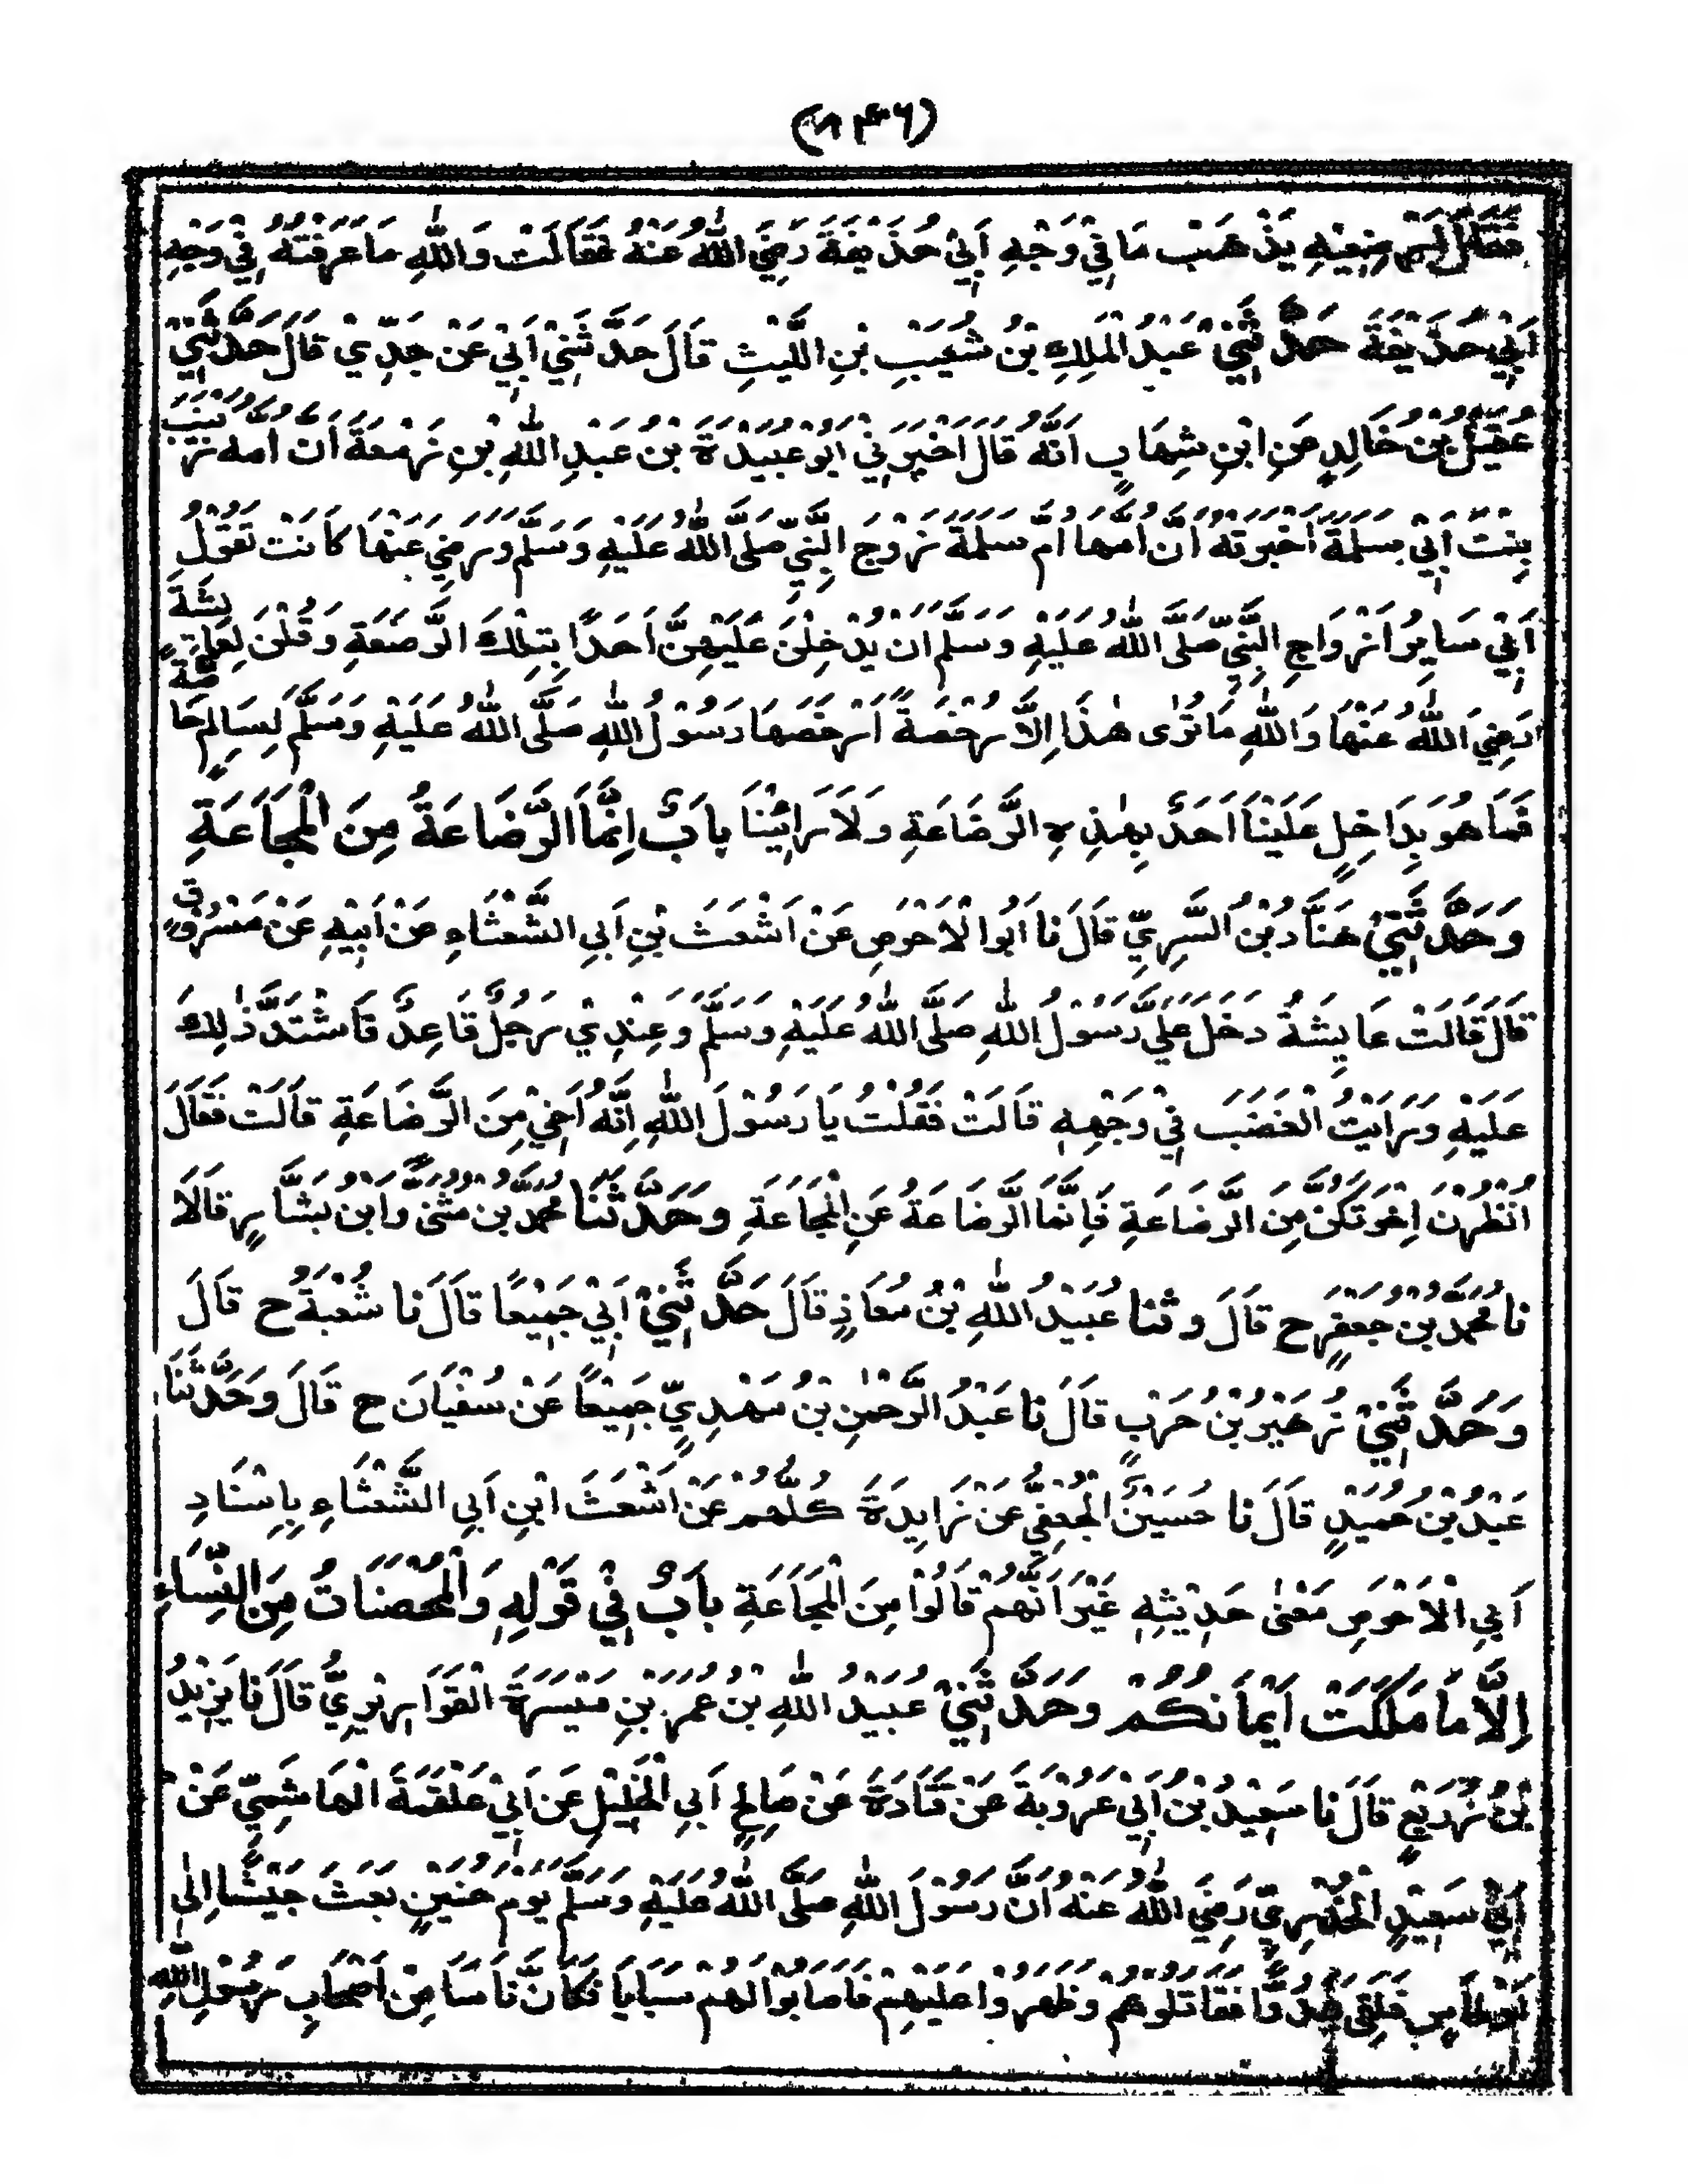 (٨٣٦)
فَقَالَ اَرْضِعِيْهِ يَذْهَبْ مَا فِيْ وَجْهِ اَبِيْ حُذَيْفَةَ رَضِيَ اللّٰهُ عَنْهُ فَقَالَتْ وَاللّٰهِ مَا عَرَفْتُهُ فِيْ وَجْهِ
اَبِيْ حُذَيْفَةَ حَدَّثَنِيْ عَبْدُ الْمَلِكِ بْنُ شُعَيْبِ بْنِ اللَّيْثِ قَالَ حَدَّثَنِيْ اَبِيْ عَنْ جَدِّيْ قَالَ حَدَّثَنِيْ
عُقَيْلُ بْنُ خَالِدٍ عَنِ ابْنِ شِهَابٍ اَنَّهُ قَالَ اَخْبَرَنِيْ اَبُوْ عُبَيْدَةَ بْنُ عَبْدِ اللّٰهِ بْنِ زَمْعَةَ اَنَّ اُمَّهُ زَيْنَبَ
بِنْتَ اَبِيْ سَلَمَةَ اَخْبَرَتْهُ اَنَّ اُمَّهَا اُمَّ سَلَمَةَ زَوْجَ النَّبِيِّ صَلَّى اللّٰهُ عَلَيْهِ وَسَلَّمَ وَرَضِيَ عَنْهَا كَانَتْ تَقُوْلُ
اَبٰى سَايِرُ اَزْوَاجِ النَّبِيِّ صَلَّى اللّٰهُ عَلَيْهِ وَسَلَّمَ اَنْ يُدْخِلْنَ عَلَيْهِنَّ اَحَدًا بِتِلْكَ الرَّضَعَةِ وَقُلْنَ لِعَايِشَةَ
رَضِيَ اللّٰهُ عَنْهَا وَاللّٰهِ مَا نَرٰى هٰذَا اِلَّا رُخْصَةً اَرْخَصَهَا رَسُوْلُ اللّٰهِ صَلَّى اللّٰهُ عَلَيْهِ وَسَلَّمَ لِسَالِمٍ خَاصَّةً
فَمَا هُوَ بِدَاخِلٍ عَلَيْنَا اَحَدٌ بِهٰذِهِ الرَّضَاعَةِ وَلَا رَائِيْنَا بَابٌ اِنَّمَا الرَّضَاعَةُ مِنَ الْمَجَاعَةِ
وَحَدَّثَنِيْ هَنَّادُ بْنُ السَّرِيِّ قَالَ نَا اَبُو الْاَحْوَصِ عَنْ اَشْعَثَ بْنِ اَبِي الشَّعْثَاءِ عَنْ اَبِيْهِ عَنْ مَسْرُوْقٍ
قَالَ قَالَتْ عَايِشَةُ دَخَلَ عَلَيَّ رَسُوْلُ اللّٰهِ صَلَّى اللّٰهُ عَلَيْهِ وَسَلَّمَ وَعِنْدِيْ رَجُلٌ قَاعِدٌ فَاشْتَدَّ ذٰلِكَ
عَلَيْهِ وَرَاَيْتُ الْغَضَبَ فِيْ وَجْهِهٖ قَالَتْ فَقُلْتُ يَا رَسُوْلَ اللّٰهِ اِنَّهُ اَخِيْ مِنَ الرَّضَاعَةِ قَالَتْ فَقَالَ
اُنْظُرْنَ اِخْوَتَكُنَّ مِنَ الرَّضَاعَةِ فَاِنَّمَا الرَّضَاعَةُ عَنِ الْمَجَاعَةِ وَحَدَّثَنَا مُحَمَّدُ بْنُ مُثَنًّى وَابْنُ بَشَّارٍ قَالَا
نَا مُحَمَّدُ بْنُ جَعْفَرٍ ح قَالَ وَثنا عُبَيْدُ اللّٰهِ بْنُ مُعَاذٍ قَالَ حَدَّثَنِيْ اَبِيْ جَمِيْعًا قَالَ نَا شُعْبَةُ ح قَالَ
وَحَدَّثَنِيْ زُهَيْرُ بْنُ حَرْبٍ قَالَ نَا عَبْدُ الرَّحْمٰنِ بْنُ مَهْدِيٍّ جَمِيْعًا عَنْ سُفْيَانَ ح قَالَ وَحَدَّثَنَا
عَبْدُ بْنُ حُمَيْدٍ قَالَ نَا حُسَيْنٌ الْجُعْفِيُّ عَنْ زَايِدَةَ كُلُّهُمْ عَنْ اَشْعَثَ ابْنِ اَبِي الشَّعْثَاءِ بِاِسْنَادِ
اَبِي الْاَحْوَصِ مَعْنٰى حَدِيْثِهٖ غَيْرَ اَنَّهُمْ قَالُوْا مِنَ الْمَجَاعَةِ بَابٌ فِيْ قَوْلِهٖ وَالْمُحْصَنَاتُ مِنَ النِّسَاءِ
اِلَّا مَا مَلَكَتْ اَيْمَانُكُمْ وَحَدَّثَنِيْ عُبَيْدُ اللّٰهِ بْنُ عُمَرَ بْنِ مَيْسَرَةَ الْقَوَارِيْرِيُّ قَالَ نَا يَزِيْدُ
بْنُ زُرَيْعٍ قَالَ نَا سَعِيْدُ بْنُ اَبِيْ عَرُوْبَةَ عَنْ قَتَادَةَ عَنْ صَالِحٍ اَبِي الْخَلِيْلِ عَنْ اَبِيْ عَلْقَمَةَ الْهَاشِمِيِّ عَنْ
اَبِيْ سَعِيْدٍ الْخُدْرِيِّ رَضِيَ اللّٰهُ عَنْهُ اَنَّ رَسُوْلَ اللّٰهِ صَلَّى اللّٰهُ عَلَيْهِ وَسَلَّمَ يَوْمَ حُنَيْنٍ بَعَثَ جَيْشًا اِلٰى
اَوْطَاسٍ فَلَقِيَ عَدُوًّا فَقَاتَلُوْهُمْ وَظَهَرُوْا عَلَيْهِمْ فَاَصَابُوْا لَهُمْ سَبَايَا فَكَانَّ نَاسًا مِنْ اَصْحَابِ رَسُوْلِ اللّٰهِ